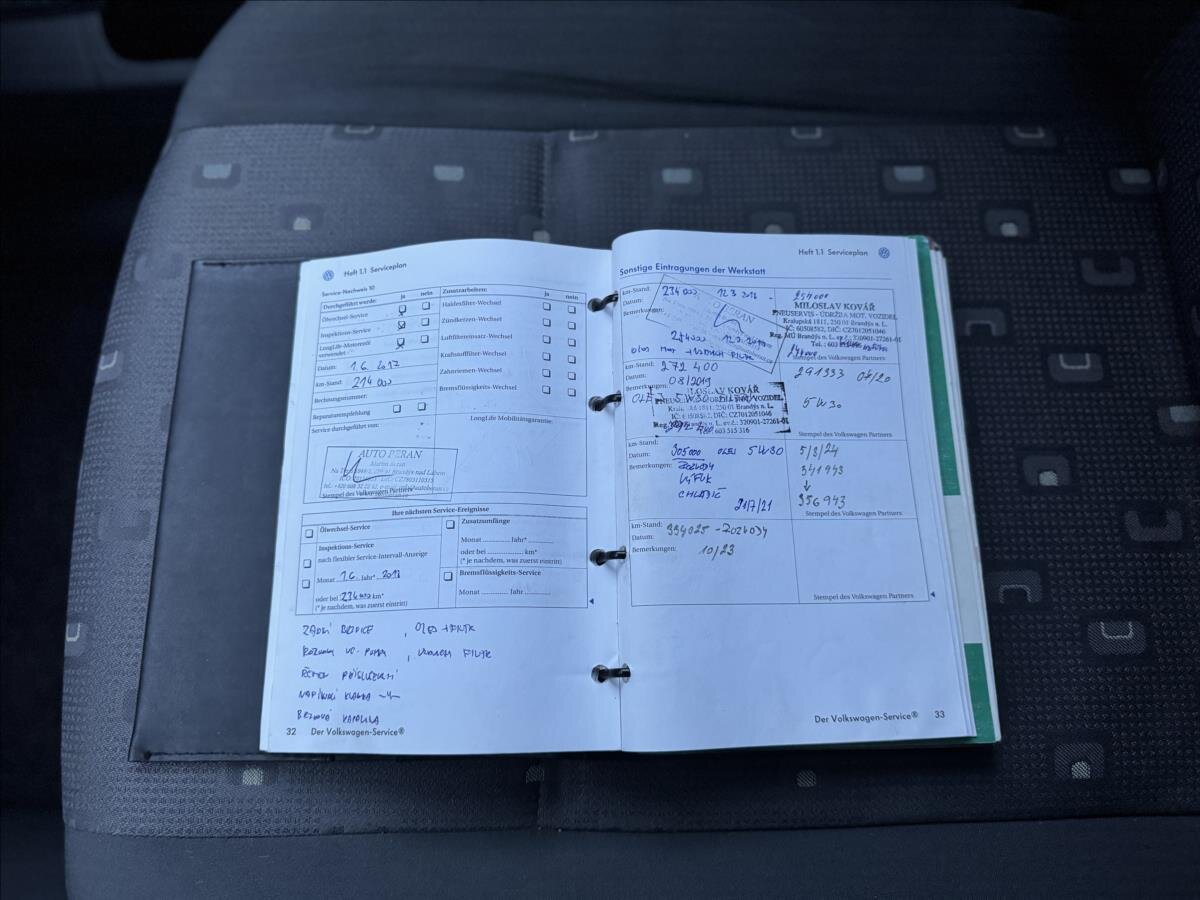 Heft 1.1 Serviceplan
Service-Nachweis 10
Durchgeführt wurde: ja nein
Ölwechsel-Service
Inspektions-Service
LongLife-Motorenöl
verwendet
Datum: 1.6. 2017
km-Stand: 214 000
Rechnungsnummer:
Reparaturempfehlung
Service durchgeführt von:
AUTO BERAN
Stempel des Volkswagen Partners
Zusatzarbeiten: ja nein
Haldesfilter-Wechsel
Zündkerzen-Wechsel
Luftfiltereinsatz-Wechsel
Kraftstofffilter-Wechsel
Zahnriemen-Wechsel
Bremsflüssigkeits-Wechsel
LongLife Mobilitätsgarantie:
Ihre nächsten Service-Ereignisse
Ölwechsel-Service
Inspektions-Service
nach flexibler Service-Intervall-Anzeige
Monat 1.6. Jahr* 2018
oder bei 234 000 km*
(* je nachdem, was zuerst eintritt)
Zusatzumfänge
Monat Jahr*
oder bei km*
(* je nachdem, was zuerst eintritt)
Bremsflüssigkeits-Service
Monat Jahr
ZADNÍ , OLEJ + FILTR
ROZVODY VČ. PUMPA , VZDUCH FILTR
ŘEMEN PŘÍSLUŠENSTVÍ
NAPÍNACÍ KLADKA
BRZDOVÁ KAPALINA
32 Der Volkswagen-Service®
Heft 1.1 Serviceplan
Sonstige Eintragungen der Werkstatt
km-Stand: 234 000 12.3 2018
Datum:
Bemerkungen:
BERAN
254000
OLEJ MOT + VZDUCH FILTR
254000
MILOSLAV KOVÁŘ
PNEUSERVIS - ÚDRŽBA MOT. VOZIDEL
Kralupská 1811, 250 01 Brandýs n. L.
IČ: 60508582, DIČ: CZ7012051046
Reg. MÚ Brandýs n. L. ev.č.: 320901-27261-01
Tel.: 603
Stempel des Volkswagen Partners
km-Stand: 272 400
Datum: 08/2019
Bemerkungen:
OLEJ 5W30
MILOSLAV KOVÁŘ
PNEUSERVIS - ÚDRŽBA MOT. VOZIDEL
Kralupská 1811, 250 01 Brandýs n. L.
IČ: 60508582, DIČ: CZ7012051046
Reg. ev.č.: 320901-27261-01
603 515 316
291333 07/20
5W30
Stempel des Volkswagen Partners
km-Stand:
Datum: 305000 OLEJ 5W30
Bemerkungen: ROZVODY
VÝFUK
CHLADIČ
21/7/21
5/8/24
341943
↓
356943
Stempel des Volkswagen Partners
km-Stand: 334025 - ROZVODY
Datum:
Bemerkungen: 10/23
Stempel des Volkswagen Partners
Der Volkswagen-Service® 33